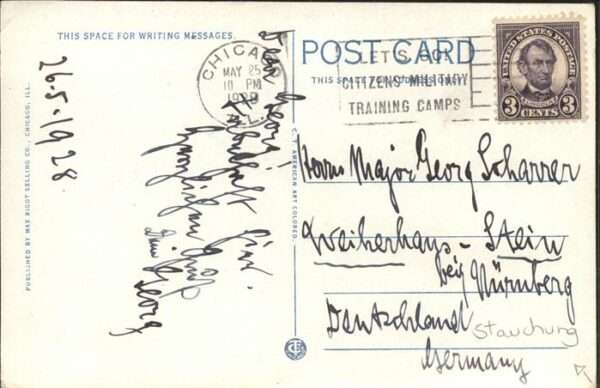 THIS SPACE FOR WRITING MESSAGES.
POST CARD
THIS SPACE FOR ADDRESS ONLY.
CHICAGO
MAY 25
10 PM
1928
LET'S GO!
CITIZENS MILITARY
TRAINING CAMPS
UNITED STATES POSTAGE
LINCOLN
3 CENTS 3
26.5.1928
Dear Georg!
Georg
Herrn Major Georg Scharrer
Weiherhaus - Stein
bei Nürnberg
Deutschland
Stauchung
Germany
PUBLISHED BY MAX RIGOT SELLING CO., CHICAGO, ILL.
C. T. AMERICAN ART COLORED.